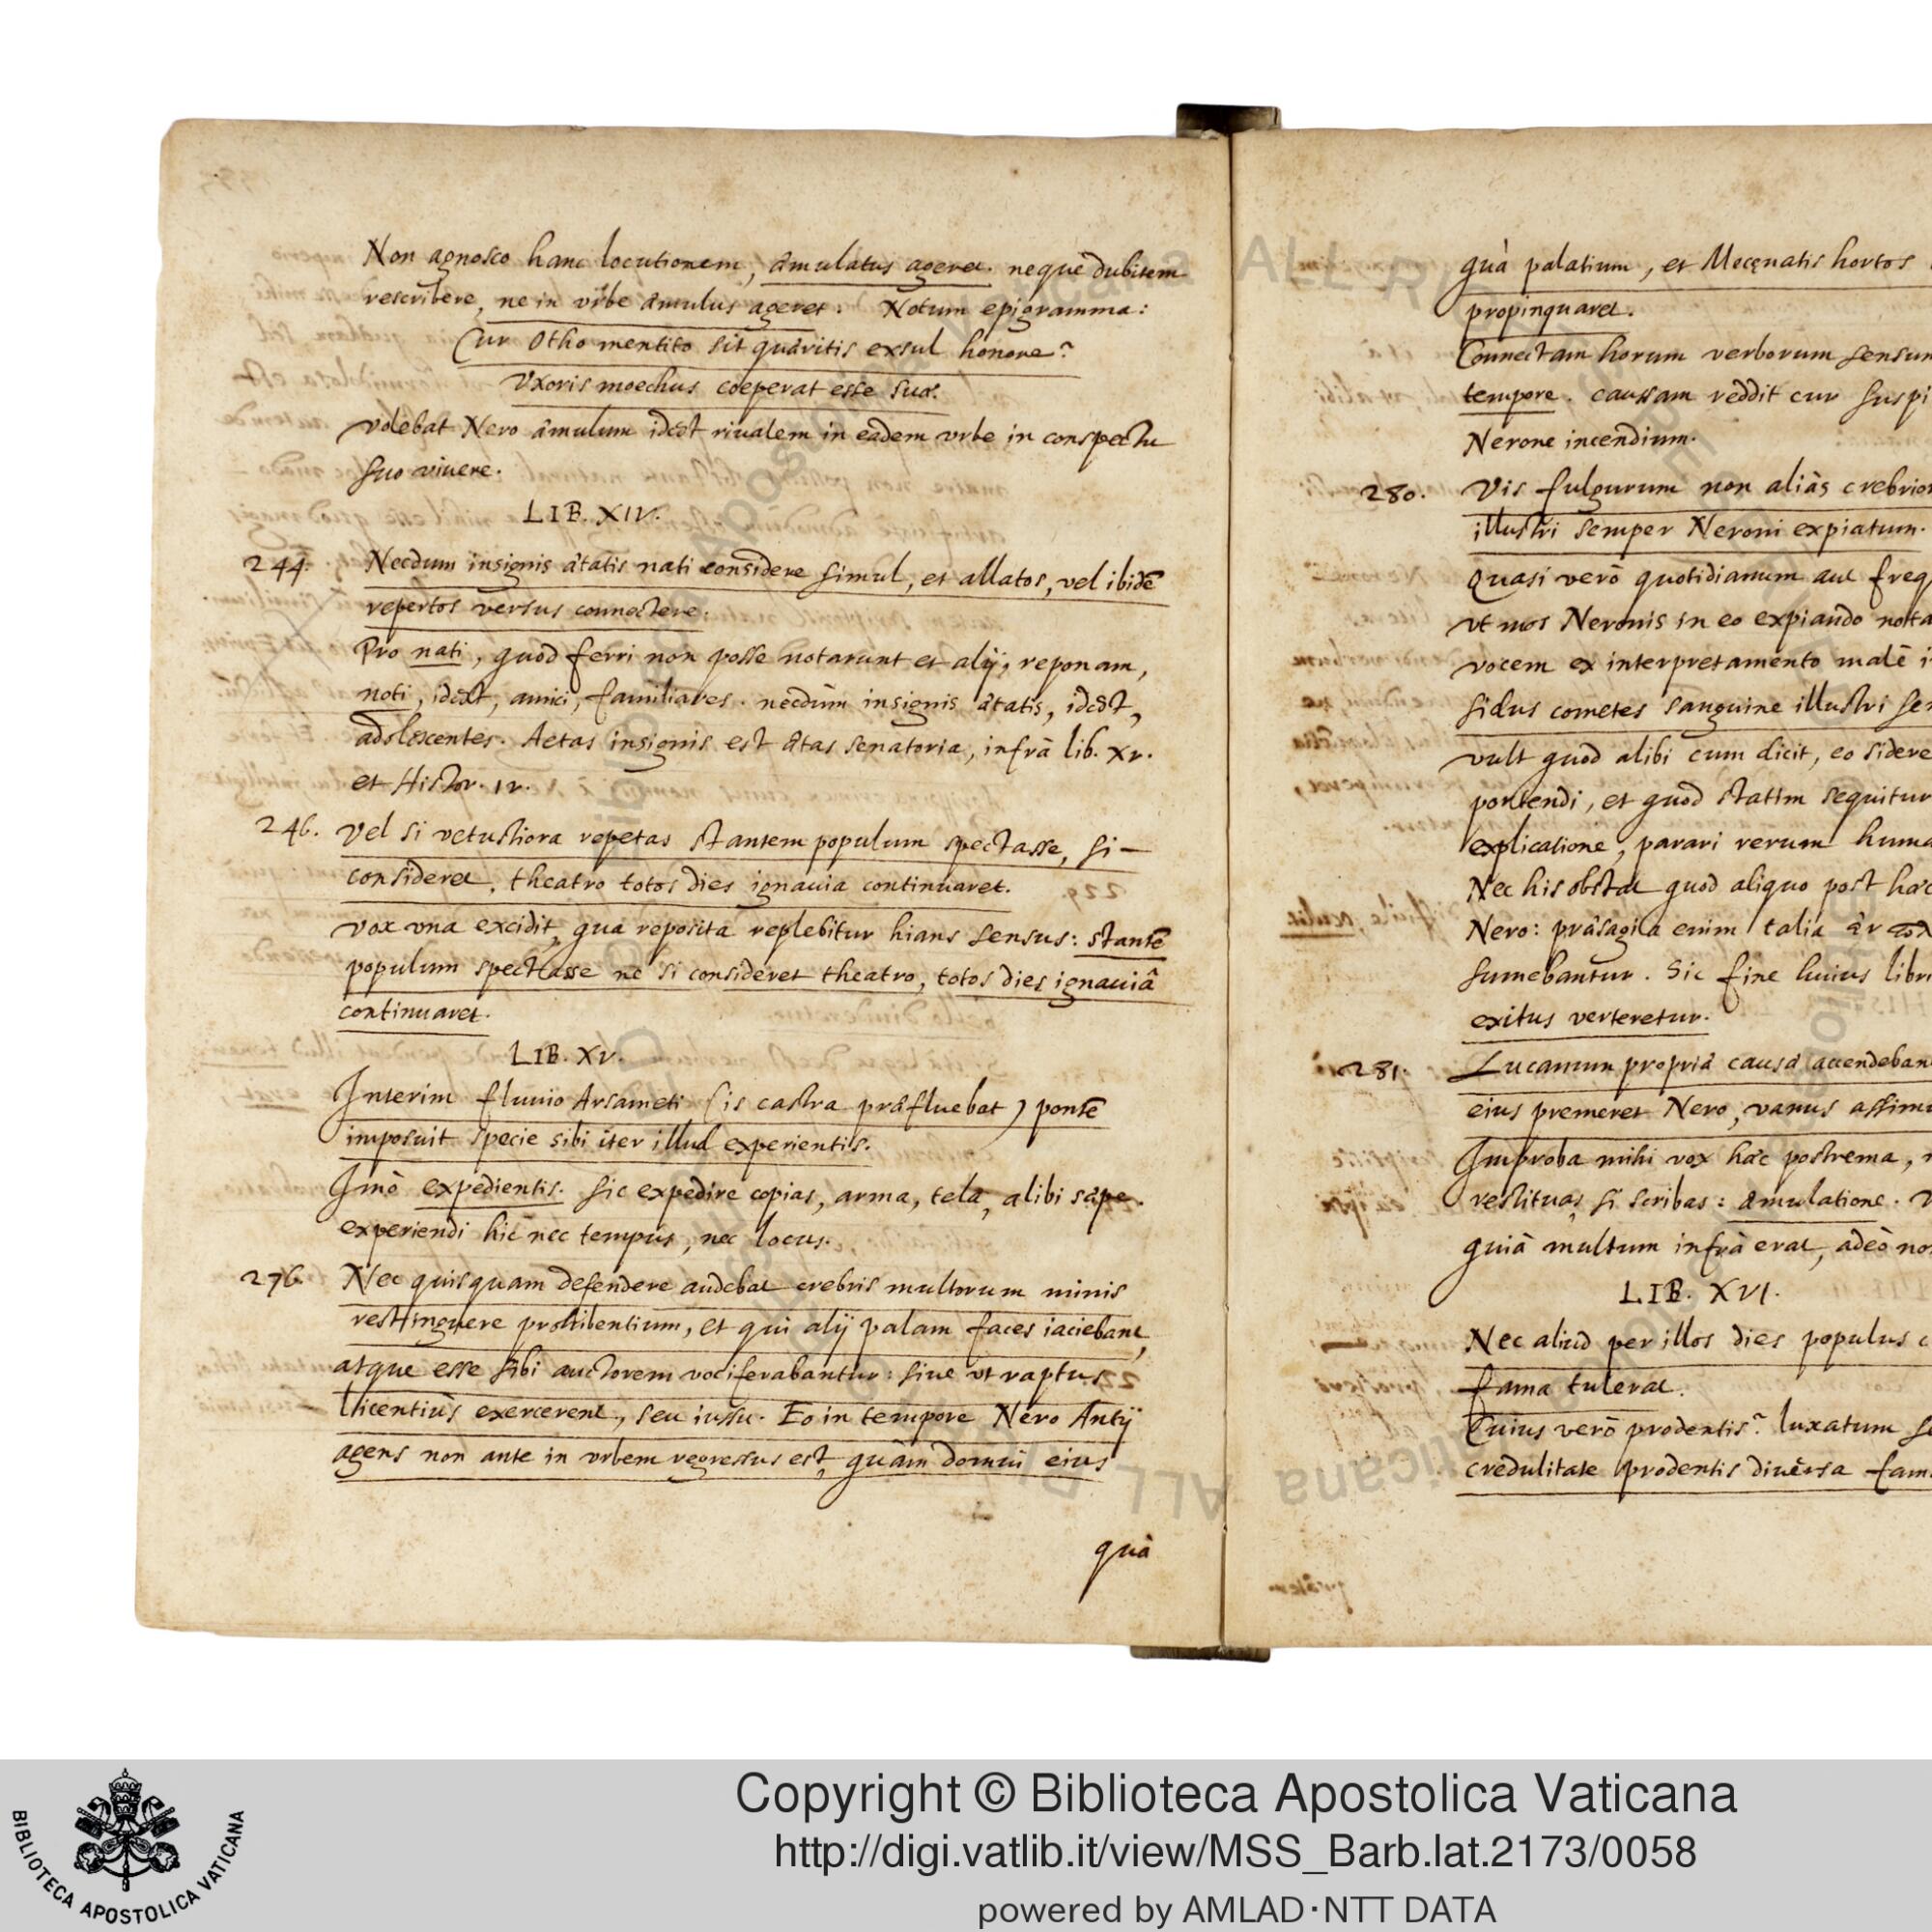 Non agnosco hanc locutionem, æmulatus ageret. neque dubitem
rescribere, ne in vrbe æmulus ageret. Notum epigramma:
Cur Otho mentito sit quæritis exsul honore?
Vxoris moechus coeperat esse suæ.
volebat Nero æmulum idest riualem in eadem vrbe in conspectu
suo viuere.
LIB. XIV.
244. Necdum insignis ætatis nati considere simul, et allatos, vel ibidē
repertos versus connectere.
Pro nati, quod ferri non posse notarunt et alij, reponam,
noti, idest, amici, familiares. necdum insignis ætatis, idest,
adolescentes. Aetas insignis est ætas senatoria, infrà lib. XV.
et Histor. IV.
246. Vel si vetustiora repetas stantem populum spectasse, si
consideret, theatro totos dies ignauia continuaret.
vox vna excidit, qua reposita replebitur hians sensus: stantē
populum spectasse ne si consideret theatro, totos dies ignauiâ
continuaret.
LIB. XV.
Interim fluuio Arsameti (is castra præfluebat) pontē
imposuit specie sibi iter illud experientis.
Imò expedientis. sic expedire copias, arma, tela, alibi sæpe.
experiendi hic nec tempus, nec locus.
276. Nec quisquam defendere audebat crebris multorum minis
restinguere prohibentium, et qui alij palam faces iaciebant,
atque esse sibi auctorem vociferabantur: siue vt raptus
licentiùs exercerent, seu iussu. Eo in tempore Nero Antij
agens non ante in vrbem regressus est, quàm domui eius
quà
quà palatium, et Mecęnatis hortos
propinquaret.
Connectam horum verborum
tempore. caussam reddit cur
Nerone incendium.
280. Vis fulgurum non aliàs
illustri semper Neroni expiatum.
Quasi verò quotidianum aut
vt mos Neronis in eo expiando
vocem ex interpretamento malè
sidus cometes sanguine illustri
vult quod alibi cum dicit, eo sidere
portendi, et quod statim sequitur
explicatione, parari rerum
Nec his obstat quod aliquo post hæc
Nero: præsagita enim talia
sumebantur. Sic fine huius
exitus verteretur.
281. Lucanum propriæ causæ
eius premeret Nero, vanus
Improba mihi vox hæc postrema,
restituas, si scribas: æmulatione.
quià multum infrà erat, adeò
LIB. XVI.
Nec aliud per illos dies populus
fama tulerat.
Cuius verò prodentis? luxatum
credulitate prodentis diuersa
Copyright © Biblioteca Apostolica Vaticana
http://digi.vatlib.it/view/MSS_Barb.lat.2173/0058
powered by AMLAD·NTT DATA
BIBLIOTECA APOSTOLICA VATICANA